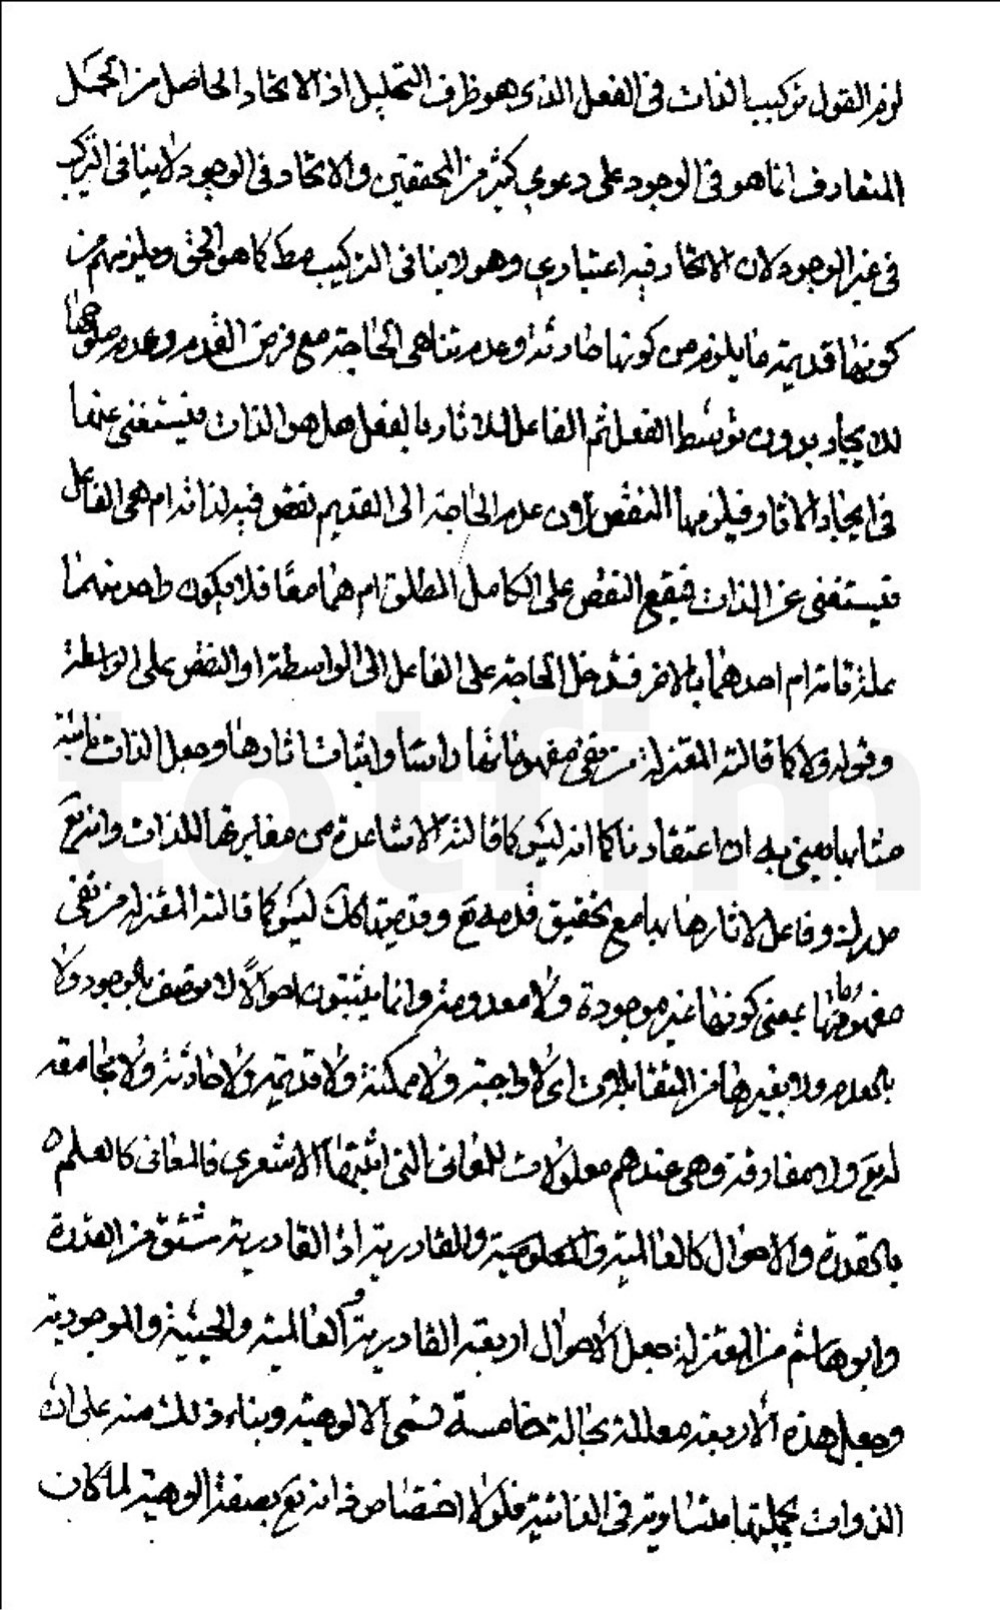 لزم القول بتركيب الذات في الفعل الذي هو ظرف التحليل اذ الاتحاد الحاصل من الحمل
المتعارف انما هو في الوجود على دعوى كثير من المحققين والاتحاد في الوجود لا ينافي التركيب
في غير الوجود لان الاتحاد فيه اعتباري وهو لا ينافي التركيب مط كما هو الحق ويلزمهم من
كونها قديمة ما يلزم من كونها حادثة وعدم تناهي الحاجة مع فرض القدم وعدم صلوحها
للايجاد بدون توسط الفعل ثم الفاعل للاثار بالفعل هل هو الذات فيستغنى عنها
في ايجاد الاثار فيلزمها النقص لان عدم الحاجة الى القديم نقص فيه لذاته ام هي الفاعل
فيستغنى عن الذات فيقع النقص على الكامل المطلق ام هما معا فلا يكون واحد منهما
علة تامة ام احدهما بالاخر فتدخل الحاجة على الفاعل الى الواسطة او النقص على الواسطة
وقوله ولا كما قالته المعتزلة من نفي مفهوماتها راسا واثبات اثارها وجعل الذات نائبة
منابها يعني به ان اعتقادنا كما انه ليس كما قالته الاشاعرة من مغايرتها للذات وانه تع
مدرك وفاعل لاثارها بها مع تحقيق قدمه تع وقدمها كك ليس كما قالته المعتزلة من نفي
مفهوماتها بمعنى كونها غير موجودة ولا معدومة وانما يثبتون احوالا لا توصف بالوجود ولا
بالعدم ولا بغيرها من المتقابلات اي لا واجبة ولا ممكنة ولا قديمة ولا حادثة ولا مجامعة
له تع ولا مفارقة وهي عندهم معلولات للمعاني التي اثبتها الاشعري فالمعاني كالعلم ه
بالقدرة والاحوال كالعالمية والمعلومية وللقادرية اذ القادرية مشتق من القدرة
وابو هاشم من المعتزلة جعل الاحوال اربعة القادرية والعالمية والحيية والموجودية
وجعل هذه الاربعة معللة بحالة خامسة تسمى الالوهية وبناء ذلك منه على ان
الذوات بجملتها متساوية في الذاتية فلولا اختصاص ذاته تع بصفة الوهية لما كان
totfim